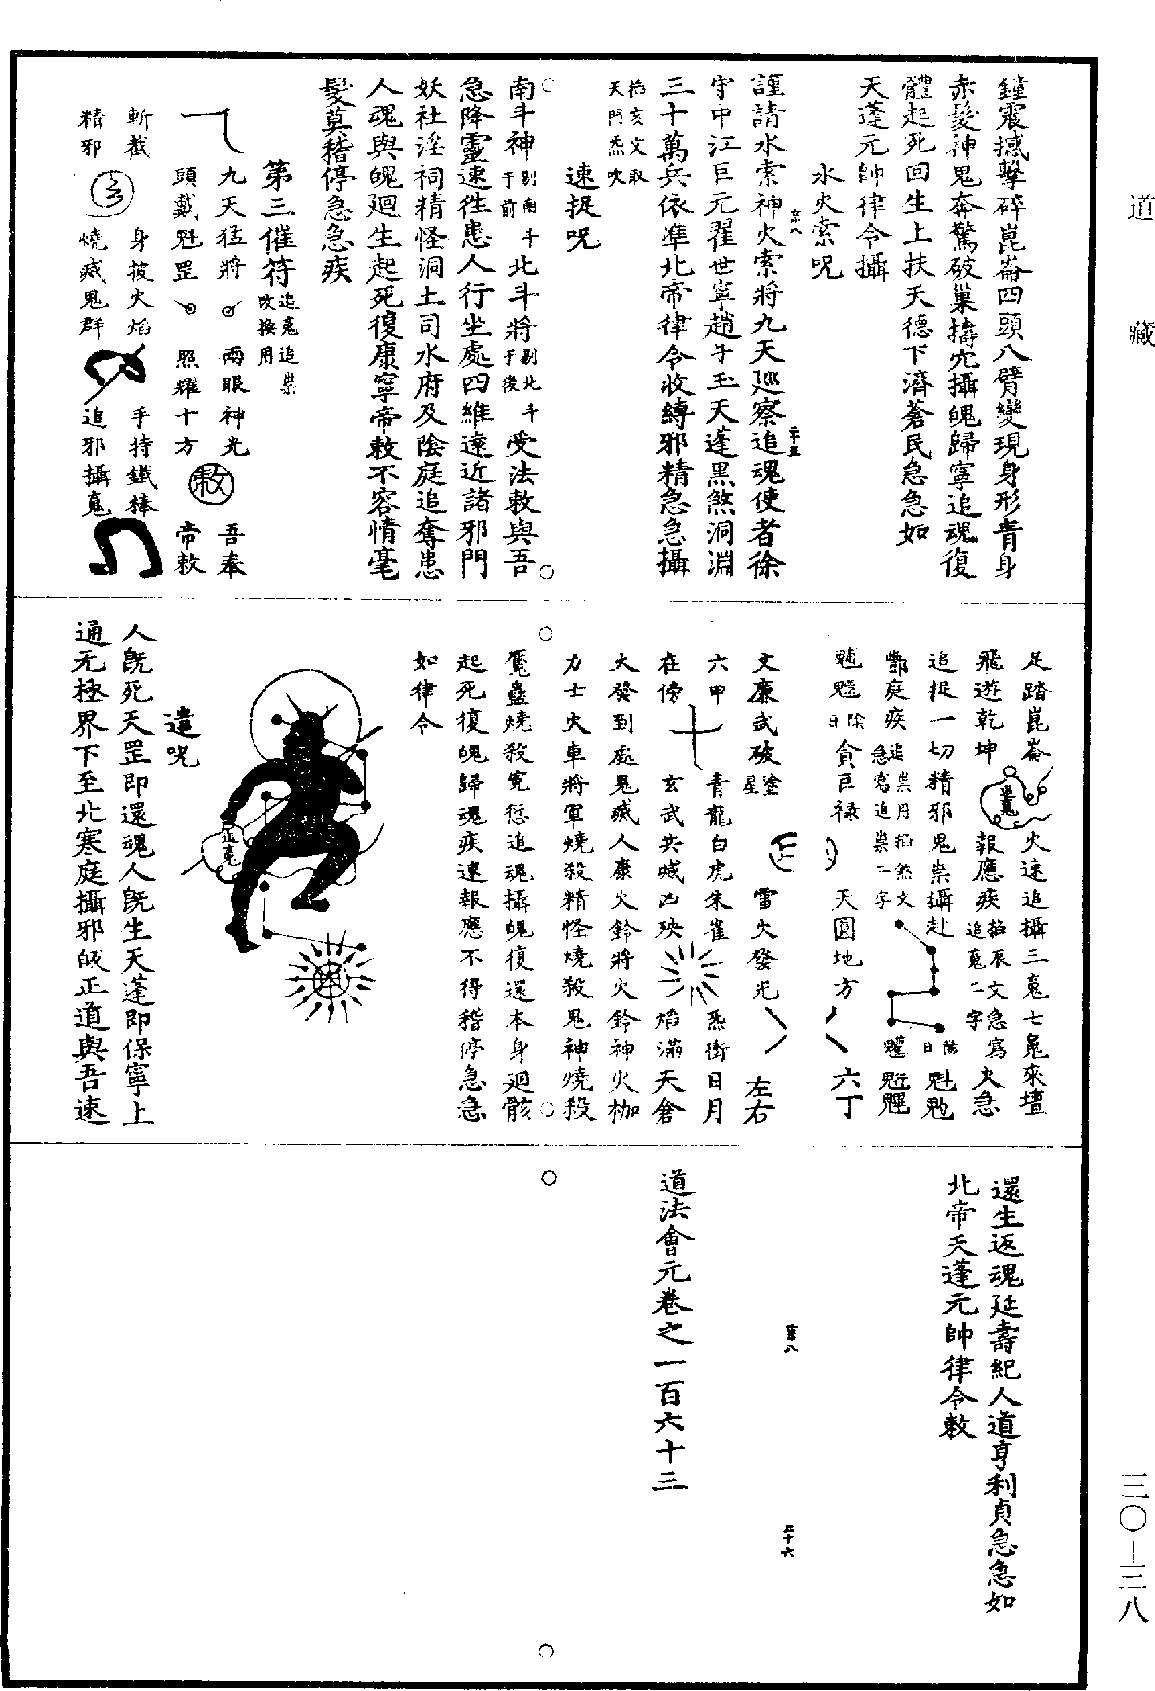 道藏
三〇—三八
鐘震撼擊碎崑崙四頭八臂變現身形青身
赤髮神鬼奔驚破巢擣穴攝魄歸寧追魂復
體起死回生上扶天德下濟蒼民急急如
天蓬元帥律令攝
水火索呪
謹請水索神火索將九天廵察追魂使者徐
守中江巨元翟世寧趙千玉天蓬黑煞洞淵
三十萬兵依準北帝律令收縛邪精急急攝
掐亥文取
天門炁吹
速捉呪
南斗神剔南斗于前北斗將剔北斗于後受法敕與吾
急降靈速往患人行坐處四維遠近諸邪門
妖社淫祠精怪洞土司水府及陰庭追奪患
人魂與魄廻生起死復康寧帝敕不容情毫
髮莫稽停急急疾
第三催符追䰟追祟改換用
九天猛將 兩眼神光 吾奉
頭戴魁罡 照耀十方 敕 帝敕
斬截 身披火焰 手持鐵棒
精邪 燒滅鬼群 追邪攝䰟
足踏崑崙 火速追攝三䰟七䰟來壇
飛遊乾坤 報應疾掐辰文急寫追䰟二字火急
追捉一切精邪鬼祟攝赴 魁
酆庭疾追祟用掐煞文急寫追祟二字
貪巨祿 天圓地方 六丁
文廉武破塗星 雷火發光 左右
六甲 青龍白虎朱雀 炁街日月
在傍 玄武兵戚凶殃 焰滿天倉
大發到處鬼滅人康火鈴將火鈴神火枷
力士火車將軍燒殺精怪燒殺鬼神燒殺
魘蠱燒殺寃愆追魂攝魄復還本身廻骸
起死復魄歸魂疾速報應不得稽停急急
如律令
遣呪
人旣死天罡即還魂人旣生天蓬即保寧上
通无極界下至北寒庭攝邪皈正道與吾速
還生返魂延壽紀人道亨利貞急急如
北帝天蓬元帥律令敕
道法會元卷之一百六十三